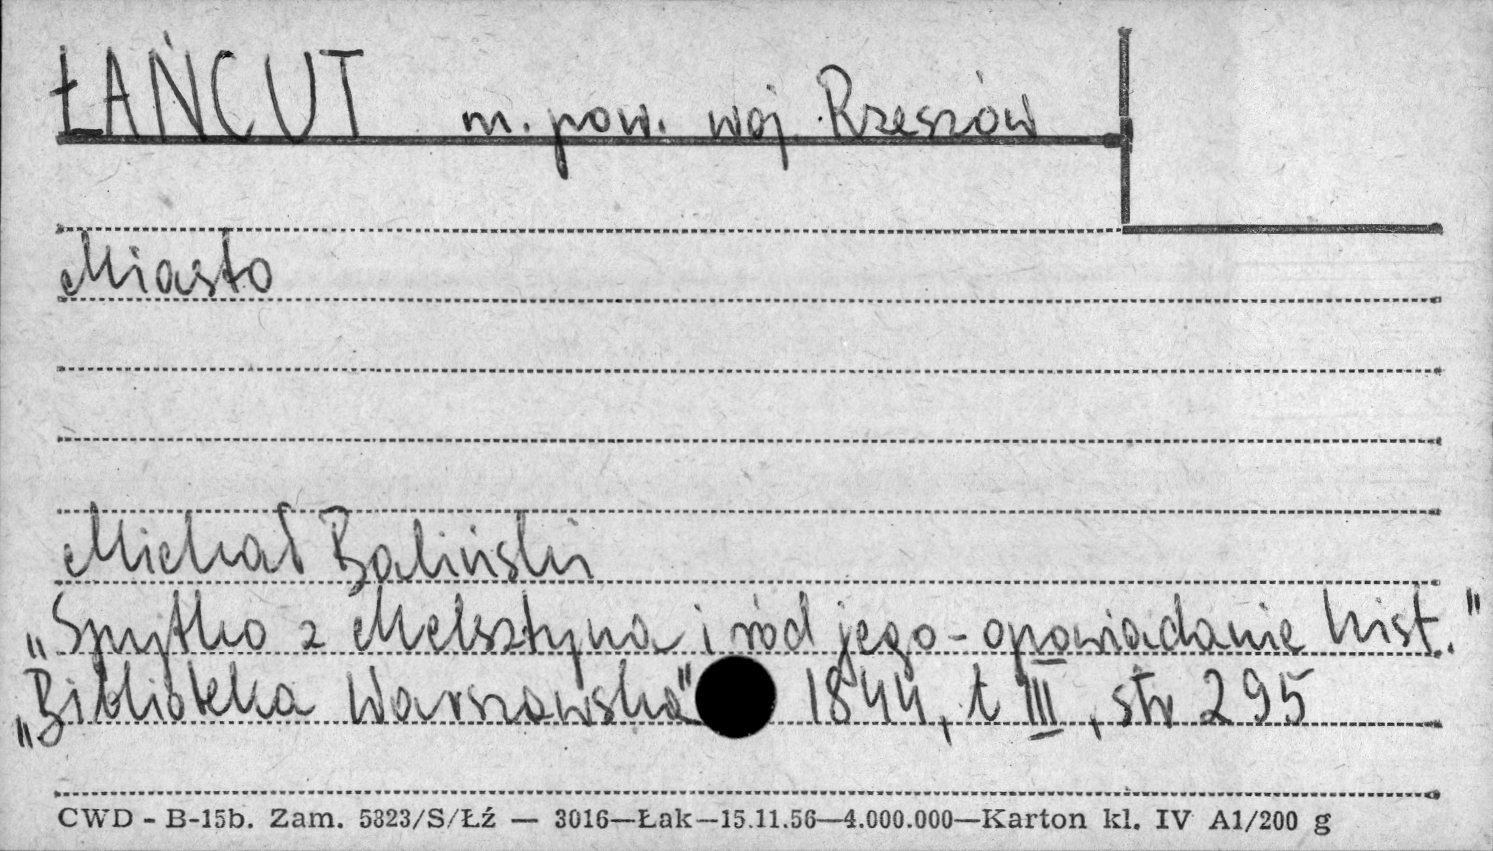 ŁAŃCUT m. pow. woj. Rzeszów
Miasto
Michał Baliński
„Spytko z Melsztyna i ród jego - opowiadanie hist."
„Biblioteka Warszawska" 1844, t III, str 295
CWD - B-15b. Zam. 5323/S/Łź — 3016—Łak—15.11.56—4.000.000—Karton kl. IV A1/200 g